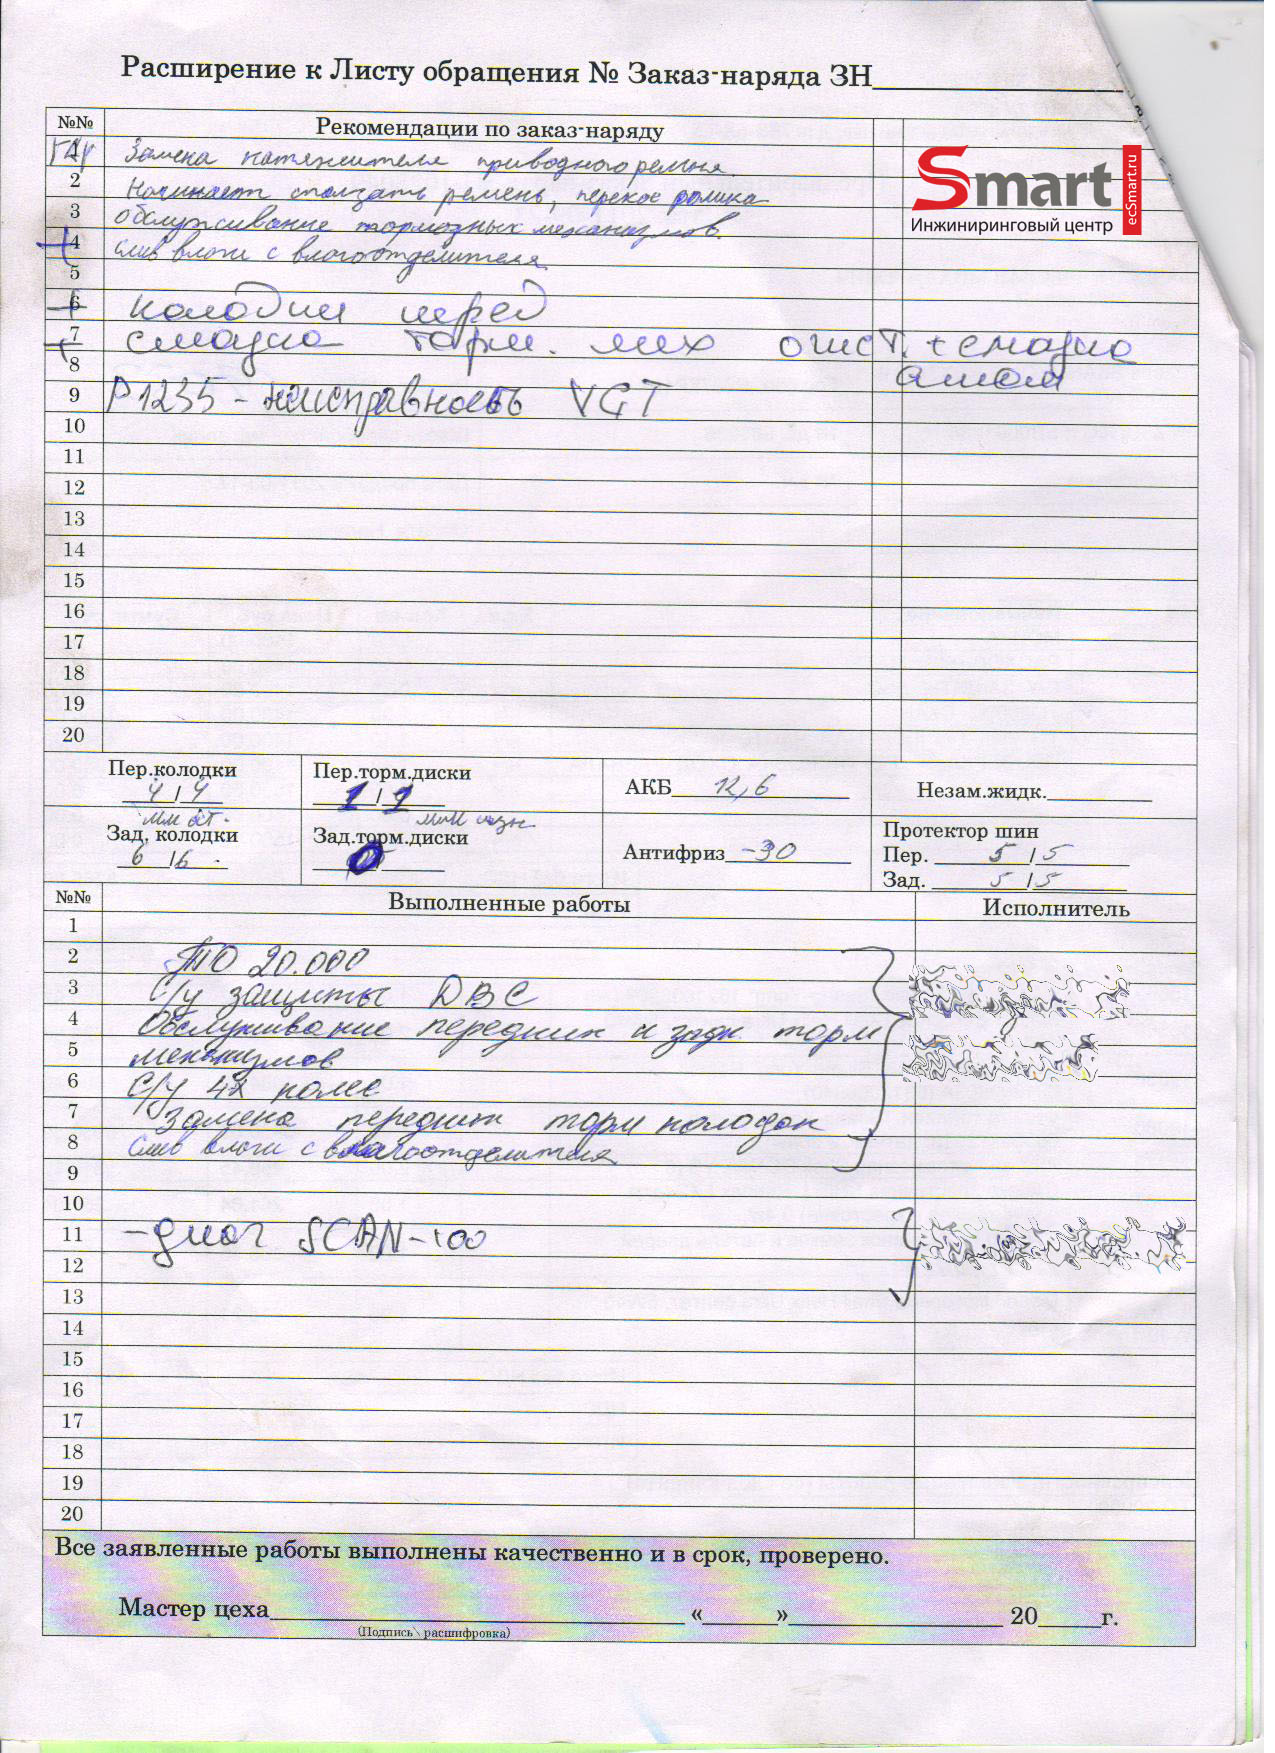 Расширение к Листу обращения № Заказ-наряда ЗН
№№ Рекомендации по заказ-наряду
Smart
ecSmart.ru
Инжиниринговый центр
1 Замена натяжителя приводного ремня.
2 Начинает сползать ремень, перекос ролика
3 обслуживание тормозных механизмов.
4 Слив влаги с влагоотделителя
5
6 колодки перед
7 смазка торм. мех очист. + смазка
8
9 P1235 - неисправность VGT
10
11
12
13
14
15
16
17
18
19
20
Пер.колодки 4/4 Пер.торм.диски 1/1 АКБ 12,6 Незам.жидк.
мм ост. мм изн
Зад. колодки 6/6 Зад.торм.диски 0 Антифриз -30 Протектор шин
Пер. 5/5
Зад. 5/5
№№ Выполненные работы Исполнитель
1
2 ТО 20.000
3 С/у защиты ДВС
4 Обслуживание передних и задн. торм
5 механизмов
6 С/у 4х колес
7 Замена передних торм колодок
8 Слив влаги с влагоотделителя
9
10
11 - диаг SCAN-100
12
13
14
15
16
17
18
19
20
Все заявленные работы выполнены качественно и в срок, проверено.
Мастер цеха « » 20 г.
(Подпись \ расшифровка)